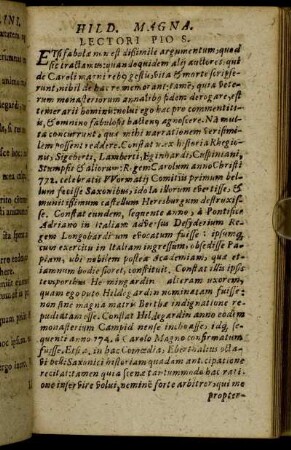 HILD. MAGNA.
LECTORI PIO S.
ETsi fabulæ non est dissimile argumentum, quod
hic tractamus: quandoquidem alij auctores, qui
de Caroli magni rebus gestis, vita & morte scripse-
runt, nihil de hac re memorant: tamẽ, quia veterum
monasteriorum annalibus fidem derogare, est
temerarij hominis: nolui ego hac pro commentitijs,
& omnino fabulosis haberi agnoscere. Nã multa
concurrunt, quæ mihi narrationem verisimilem
possent reddere. Constat n. ex historia Rhegio-
nis, Sigeberti, Lamberti, Eginhardi, Cuspiniani,
Stumpfij & aliorum: Regem Carolum anno Christi
772. celebratis VVormatiæ Comitijs primum
bellum fecisse Saxonibus, idola illorum evertisse, &
munitissimum castellum Heresburgum destruxis-
se. Constat eundem, sequente anno, à Pontifice
Adriano in Italiam adversus Desyderium Re-
gem Longobardorum evocatum fuisse: ipsumq;
cum exercitu in Italiam ingressum, obsedisse Pa-
piam, ubi nobilem postea Academiam, quæ et-
iamnum hodie floret, constituit. Constat illis ipsis
temporibus Hemingardin alteram uxorem,
quam ego puto Hildegardin nominatam fuisse:
non sine magna matris Berthæ indignatione re-
pudiatam esse. Constat Hildegardin anno eodem
monasterium Campidonense inchoasse: idq; se-
quenti anno 774. à Carolo Magno confirmatum
fuisse. Etsi a. in hac Comœdia, Eberthalius octa-
vi belli Saxonici historiam quadam anticipatione
recitat: tamen quia scenæ tantummodo hac rati-
one inservire volui, neminẽ fore arbitror, qui me
propter-